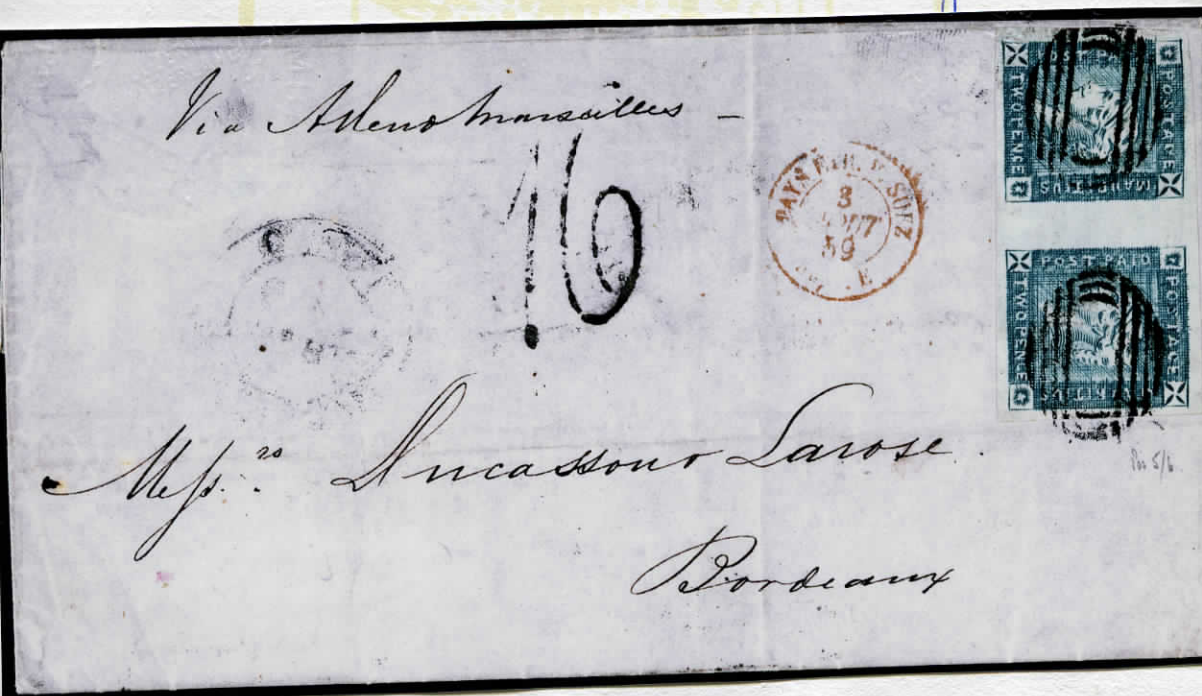 Via Aden & Marseilles –
16
PAYS ETR. V. SUEZ
3
AOUT
59
POSTAGE
TWO PENCE
MAURITIUS
POST PAID
TWO PENCE
POSTAGE
Mess.rs Ducassou & Larose.
Bordeaux